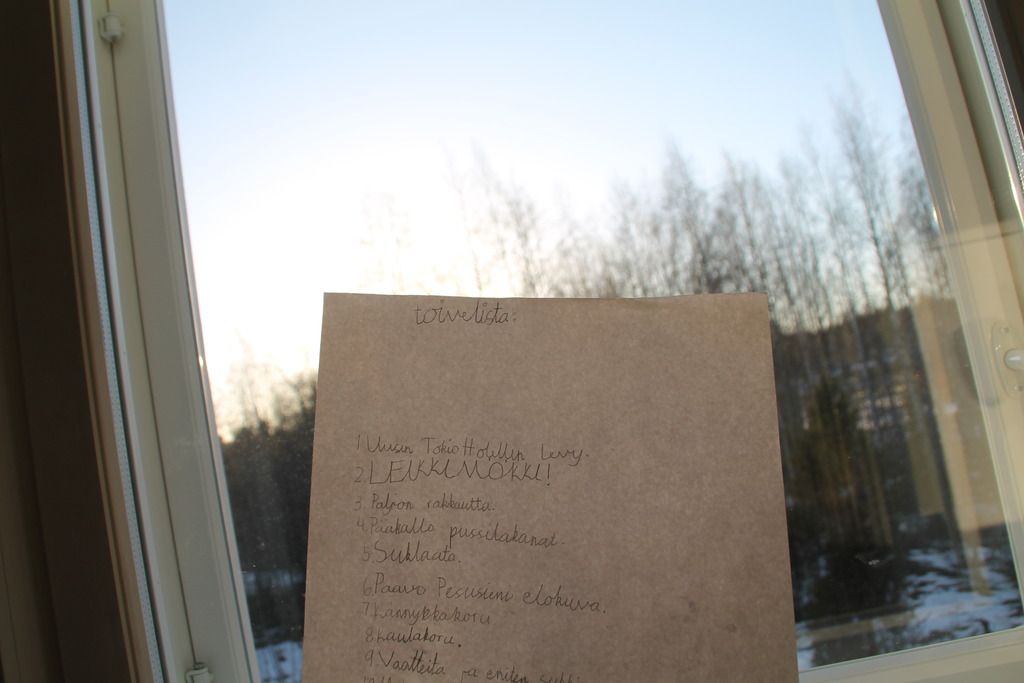 toivelista:
1. Uusin Tokio Hotellin Levy.
2. LEIKKIMÖKKI!
3. Paljon rakkautta.
4. Pääkallo pussilakanat.
5. Suklaata.
6. Paavo Pesusieni elokuva.
7. Kännykkäkoru
8. Kaulakoru.
9. Vaatteita ja eniten